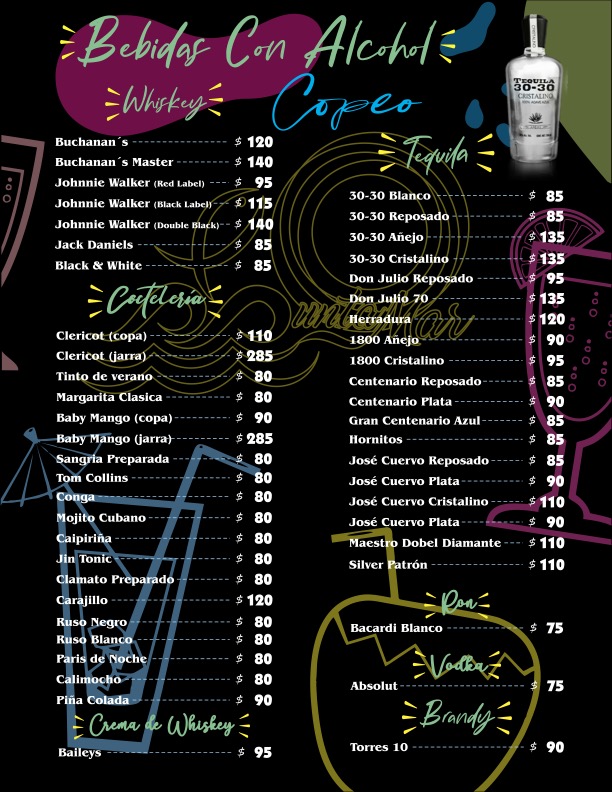 Bebidas Con Alcohol
Copeo
Whiskey
Buchanan´s $ 120
Buchanan´s Master $ 140
Johnnie Walker (Red Label) $ 95
Johnnie Walker (Black Label) $ 115
Johnnie Walker (Double Black) $ 140
Jack Daniels $ 85
Black & White $ 85
Coctelería
Clericot (copa) $ 110
Clericot (jarra) $ 285
Tinto de verano $ 80
Margarita Clasica $ 80
Baby Mango (copa) $ 90
Baby Mango (jarra) $ 285
Sangria Preparada $ 80
Tom Collins $ 80
Conga $ 80
Mojito Cubano $ 80
Caipiriña $ 80
Jin Tonic $ 80
Clamato Preparado $ 80
Carajillo $ 120
Ruso Negro $ 80
Ruso Blanco $ 80
Paris de Noche $ 80
Calimocho $ 80
Piña Colada $ 90
Crema de Whiskey
Baileys $ 95
TEQUILA
30-30
CRISTALINO
Tequila
30-30 Blanco $ 85
30-30 Reposado $ 85
30-30 Añejo $ 135
30-30 Cristalino $ 135
Don Julio Reposado $ 95
Don Julio 70 $ 135
Herradura $ 120
1800 Añejo $ 90
1800 Cristalino $ 95
Centenario Reposado $ 85
Centenario Plata $ 90
Gran Centenario Azul $ 85
Hornitos $ 85
José Cuervo Reposado $ 85
José Cuervo Plata $ 90
José Cuervo Cristalino $ 110
José Cuervo Plata $ 90
Maestro Dobel Diamante $ 110
Silver Patrón $ 110
Ron
Bacardi Blanco $ 75
Vodka
Absolut $ 75
Brandy
Torres 10 $ 90